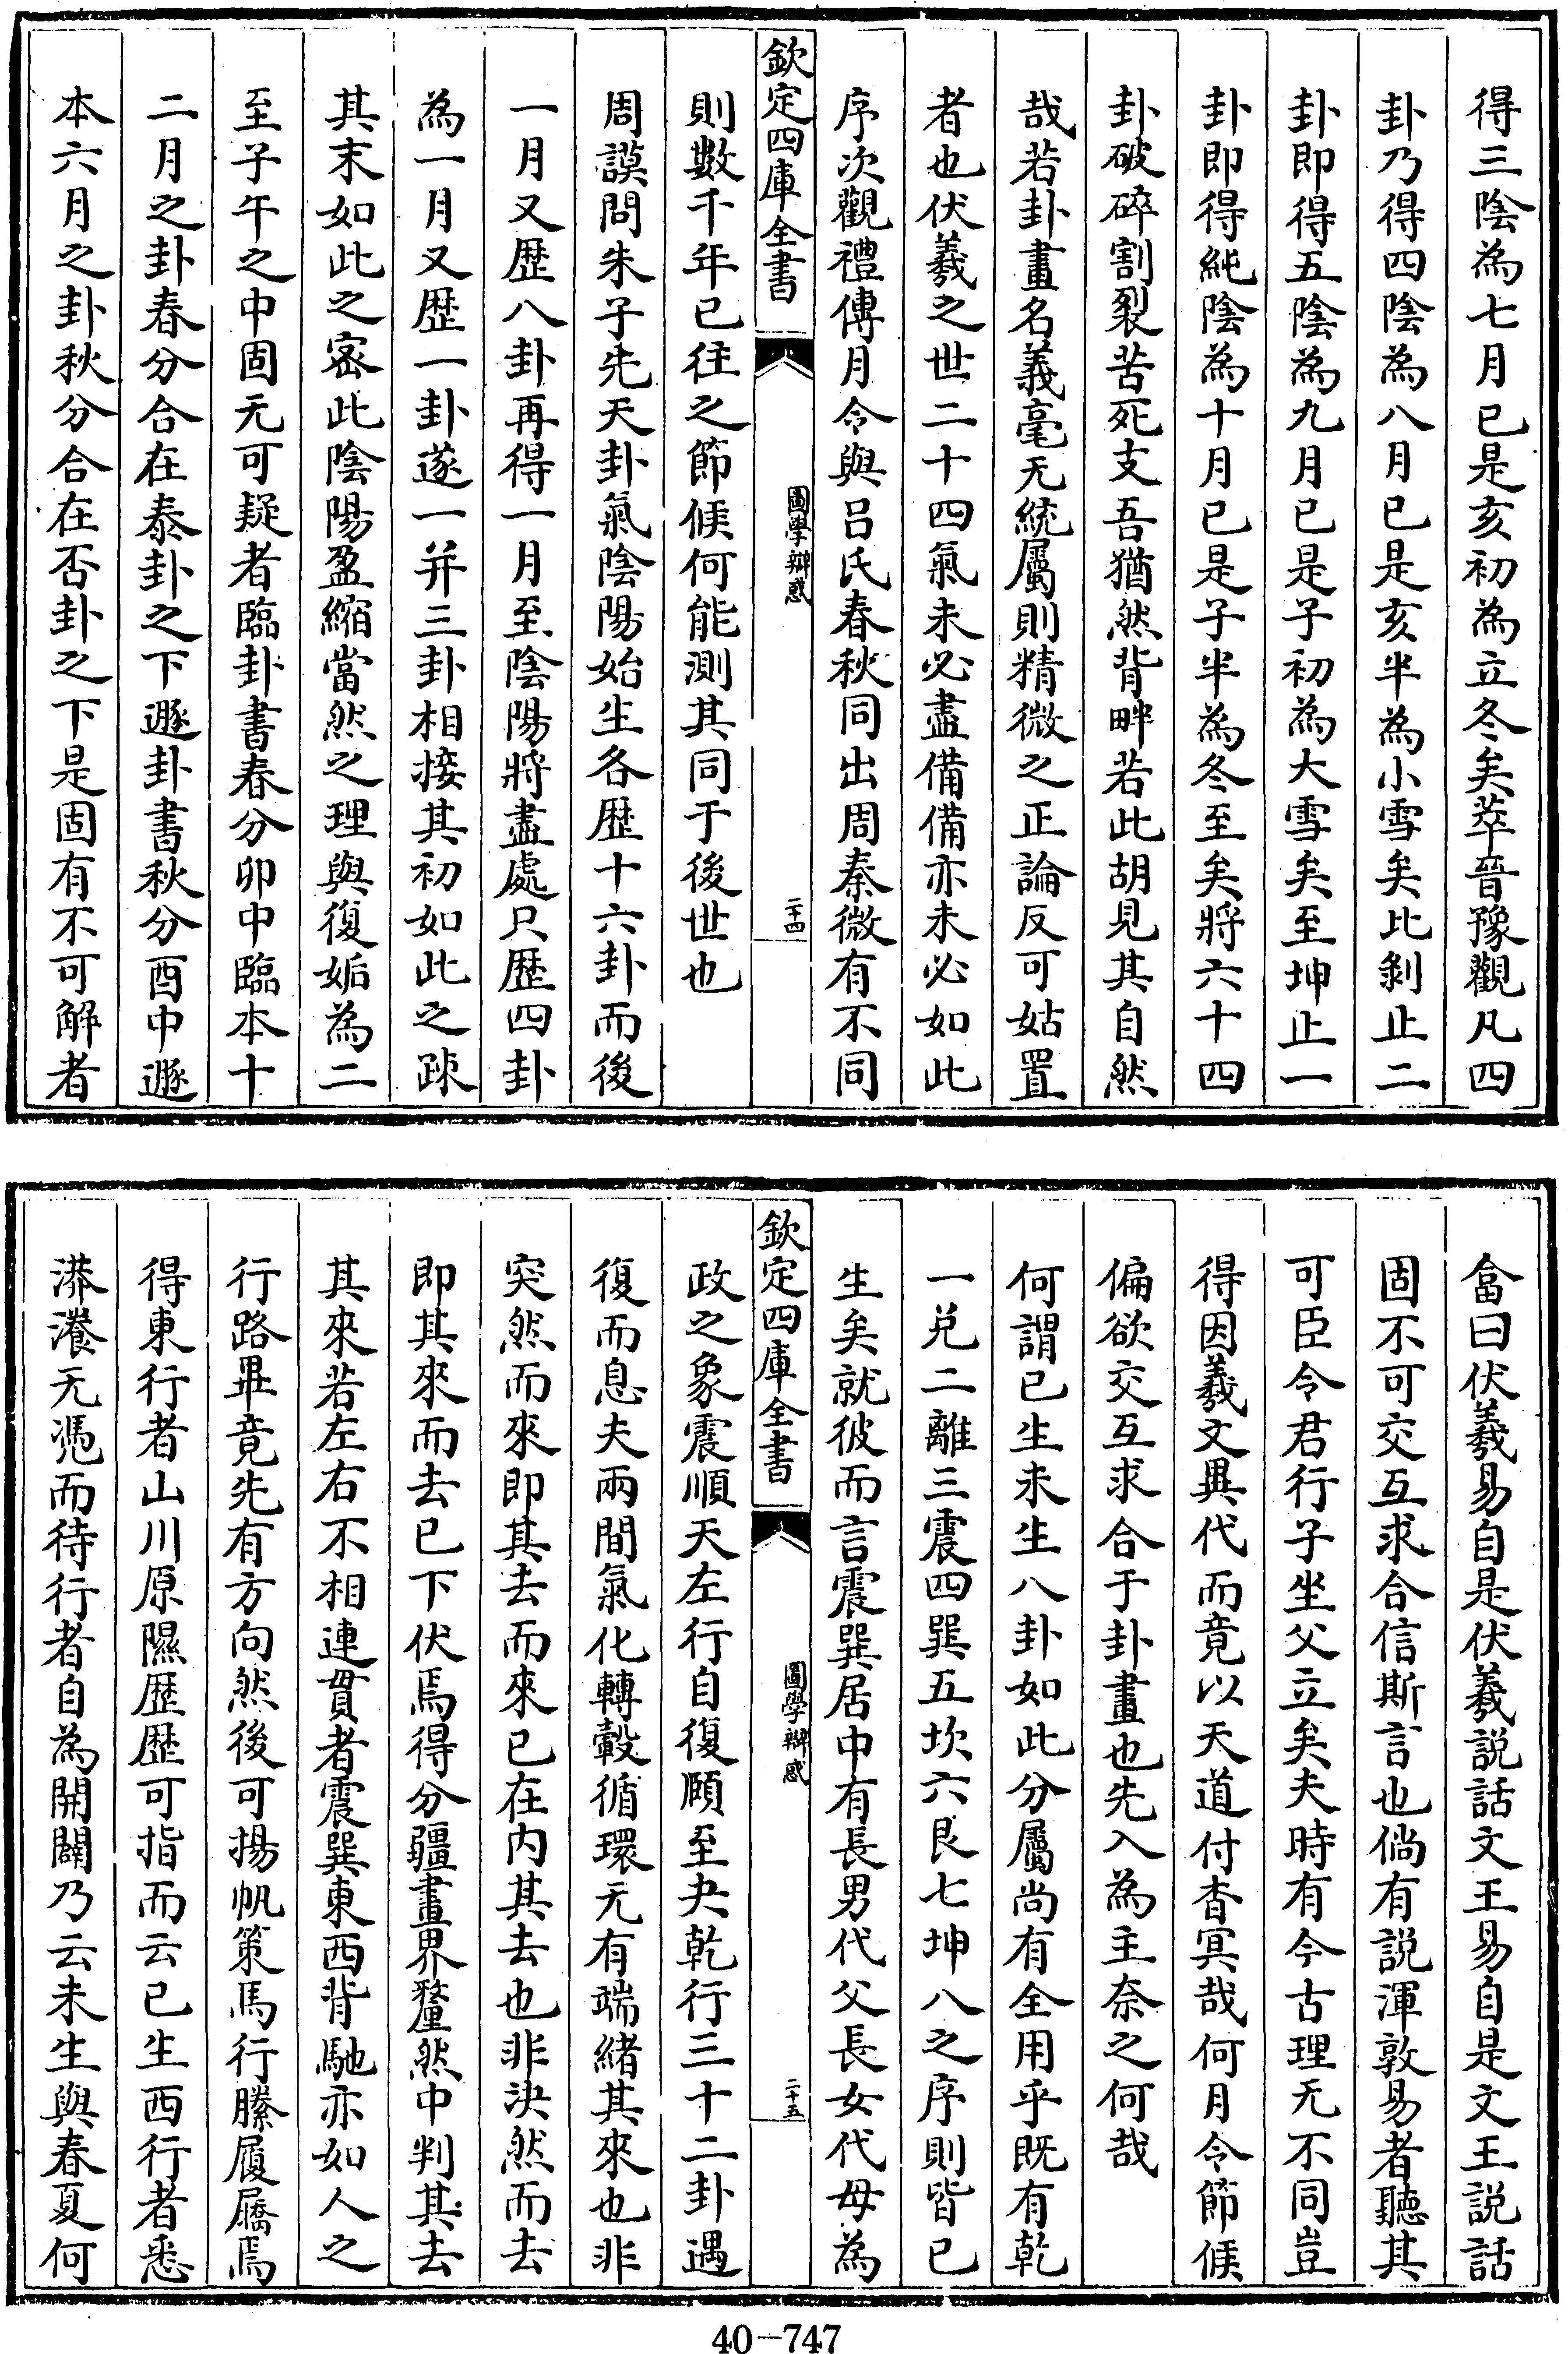 得三陰為七月已是亥初為立冬矣萃晉豫觀凡四
卦乃得四陰為八月已是亥半為小雪矣比剝止二
卦即得五陰為九月已是子初為大雪矣至坤止一
卦即得純陰為十月已是子半為冬至矣將六十四
卦破碎割裂苦死支吾猶然背畔若此胡見其自然
哉若卦畫名義毫无統屬則精微之正論反可姑置
者也伏羲之世二十四氣未必盡備備亦未必如此
序次觀禮傳月令與呂氏春秋同出周秦微有不同
欽定四庫全書
圖學辯惑
二十四
則數千年已往之節候何能測其同于後世也
周謨問朱子先天卦氣陰陽始生各歷十六卦而後
一月又歷八卦再得一月至陰陽將盡處只歷四卦
為一月又歷一卦遂一并三卦相接其初如此之踈
其末如此之宻此陰陽盈縮當然之理與復姤為二
至子午之中固无可疑者臨卦書春分卯中臨本十
二月之卦春分合在泰卦之下遯卦書秋分酉中遯
本六月之卦秋分合在否卦之下是固有不可解者
畣曰伏羲易自是伏羲説話文王易自是文王説話
固不可交互求合信斯言也倘有説渾敦易者聽其
可臣令君行子坐父立矣夫時有今古理无不同豈
得因羲文異代而竟以天道付杳冥哉何月令節候
偏欲交互求合于卦畫也先入為主奈之何哉
何謂已生未生八卦如此分屬尚有全用乎既有乾
一兌二離三震四巽五坎六艮七坤八之序則皆已
生矣就彼而言震巽居中有長男代父長女代母為
欽定四庫全書
圖學辯惑
二十五
政之象震順天左行自復頤至夬乾行三十二卦遇
復而息夫兩間氣化轉轂循環无有端緒其來也非
突然而來即其去而來已在内其去也非決然而去
即其來而去已下伏焉得分疆畫界釐然中判其去
其來若左右不相連貫者震巽東西背馳亦如人之
行路畢竟先有方向然後可揚帆策馬行縢履屩焉
得東行者山川原隰歷歷可指而云已生西行者悉
漭瀁无憑而待行者自為開闢乃云未生與春夏何
40-747